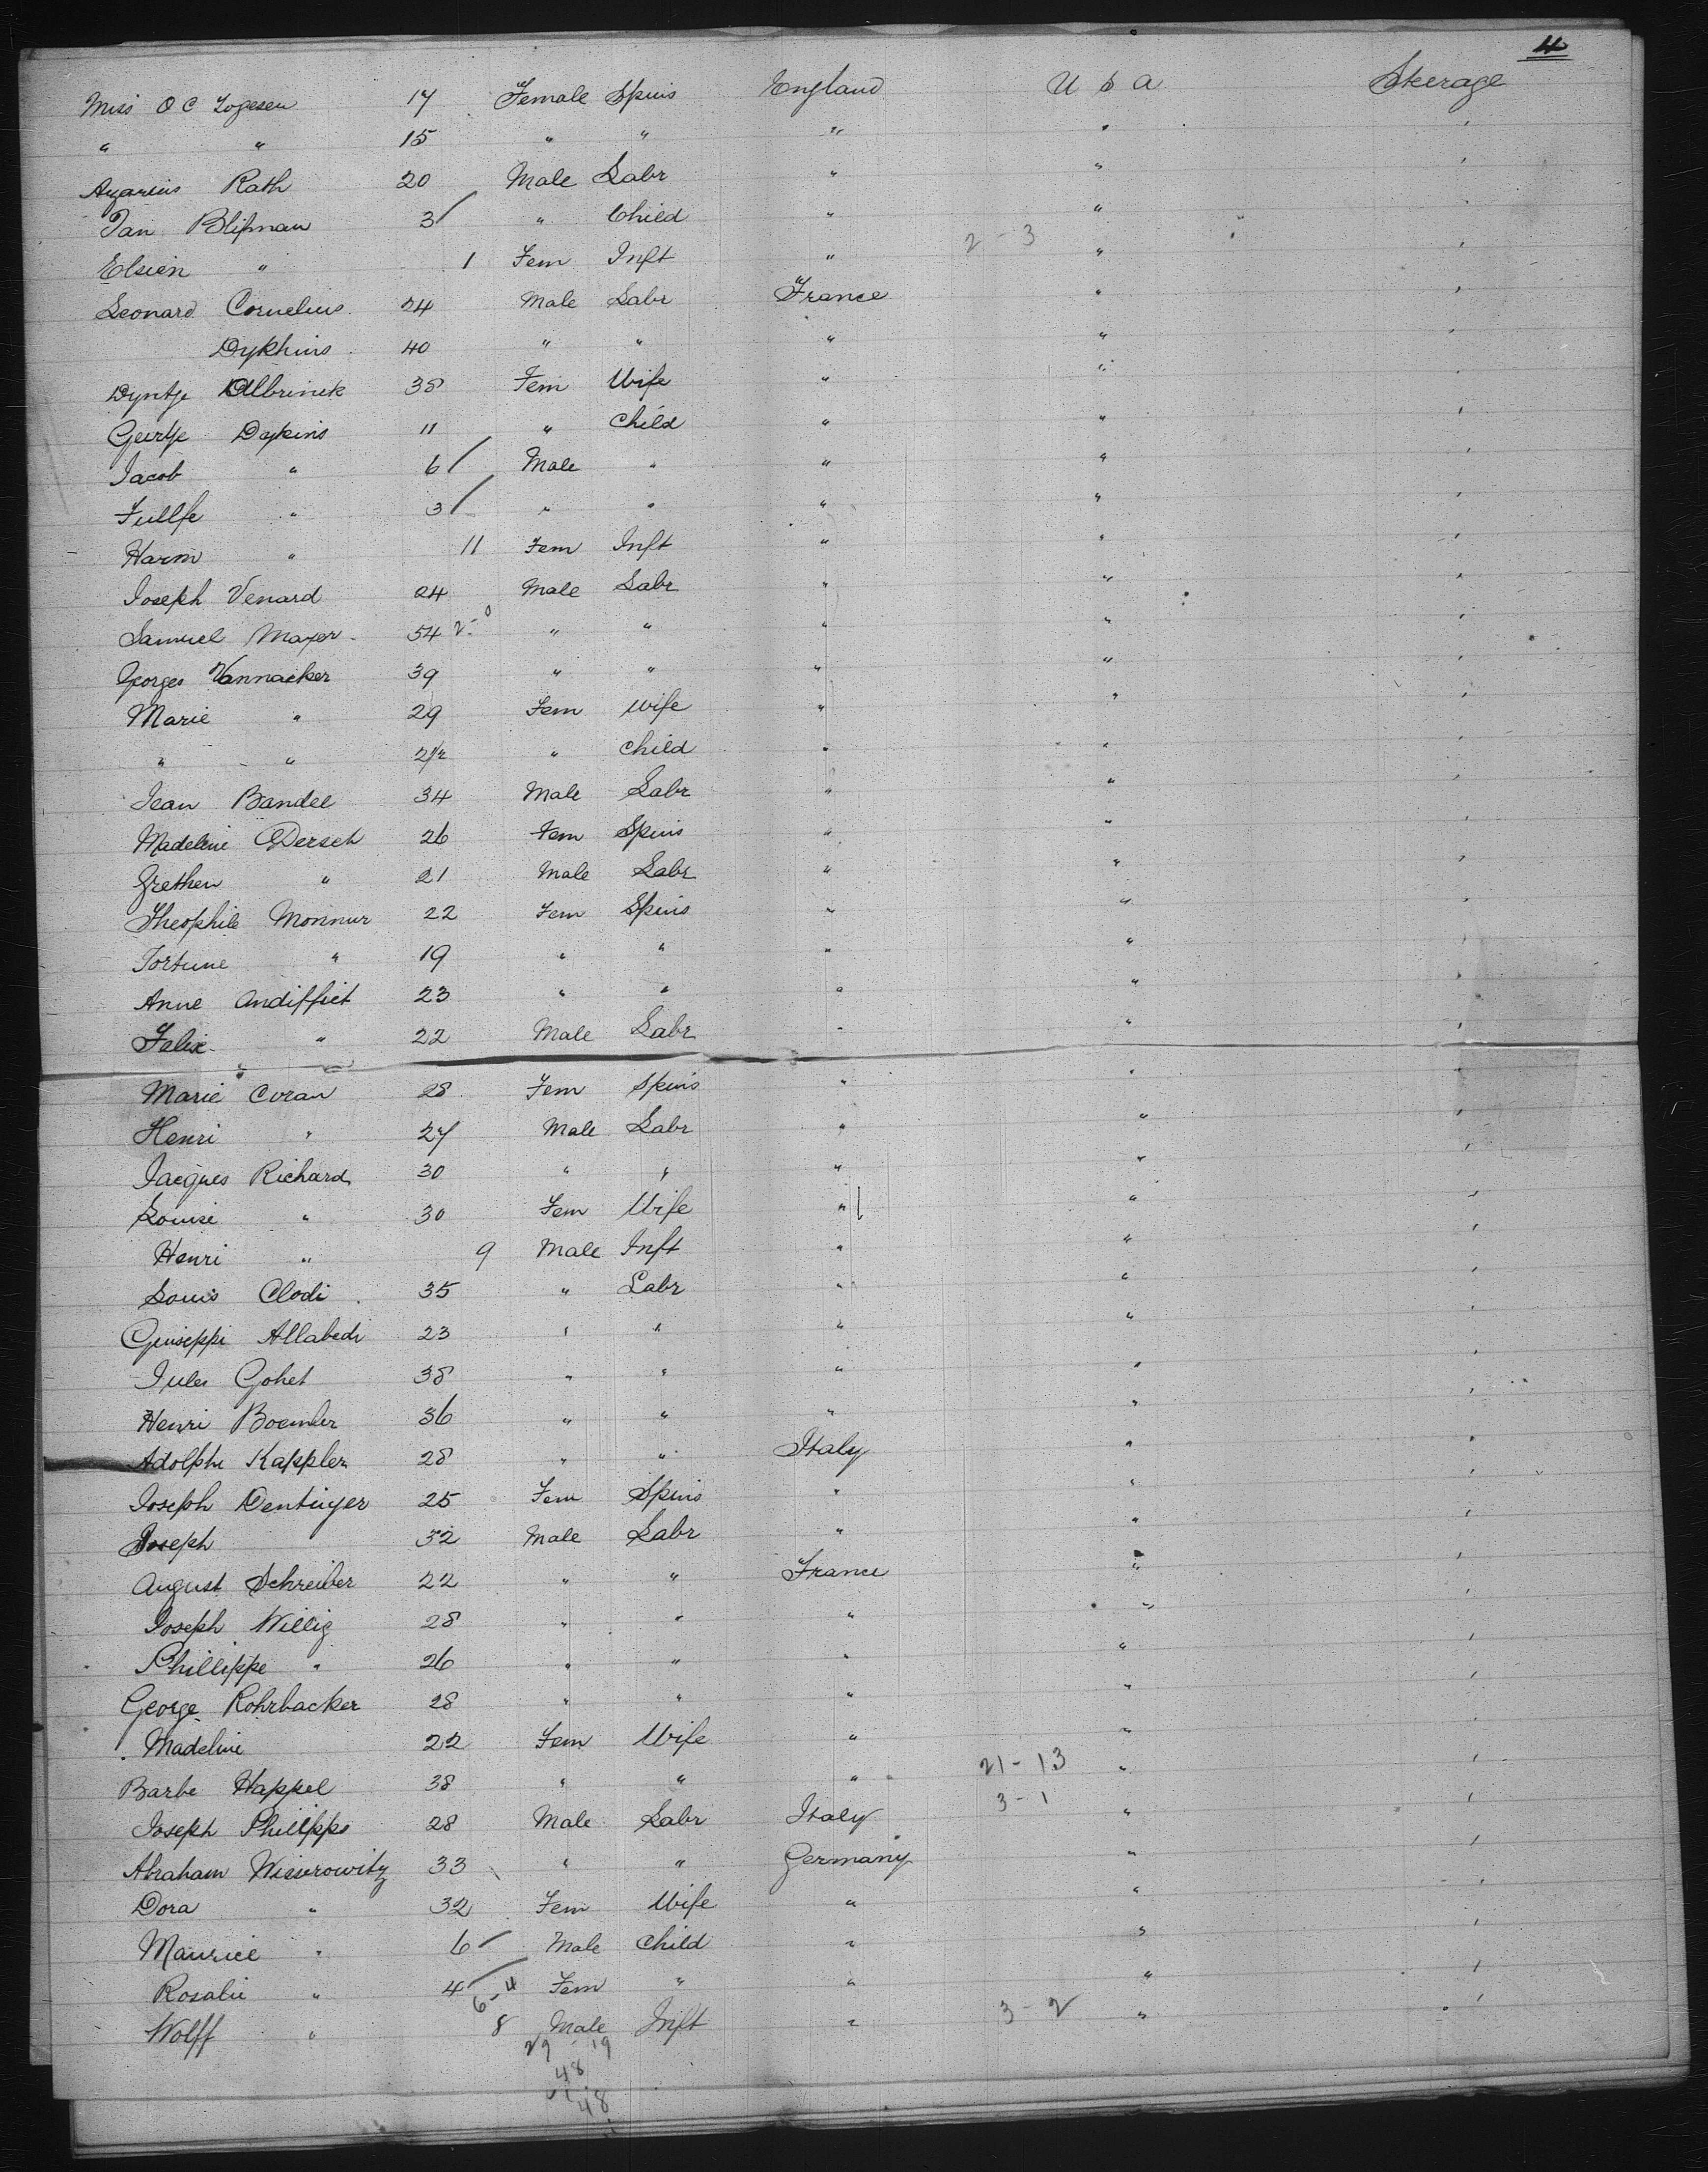 4
Miss O C Logesen 17 Female Spins England U S A Steerage
" " 15 " " " " "
Azarius Rath 20 Male Labr " " "
Jan Blipman 3 / " Child " " "
Elsien " 1 Fem Inft " 2-3 " "
Leonard Cornelius 24 Male Labr France " "
Dykhuis 40 " " " " "
Dyntje Olbrinck 38 Fem Wife " " "
Geertje Dykuis 11 " Child " " "
Jacob " 6 / Male " " " "
Fullfe " 3 / " " " " "
Harm " 11 Fem Inft " " "
Joseph Venard 24 Male Labr " " "
Samuel Mayer 54 2-0 " " " " "
Georges Vannacker 39 " " " " "
Marie " 29 Fem Wife " " "
" " 2 1/2 " Child " " "
Jean Bandel 34 Male Labr " " "
Madeleine Dersch 26 Fem Spins " " "
Grethen " 21 Male Labr " " "
Theophile Monnur 22 Fem Spins " " "
Fortune " 19 " " " " "
Anne Andiffiet 23 " " " " "
Felix " 22 Male Labr " " "
Marie Coran 28 Fem Spins " " "
Henri " 27 Male Labr " " "
Jacques Richard 30 " " " " "
Louise " 30 Fem Wife " " "
Henri " 9 Male Inft " " "
Louis Clodi 35 " Labr " " "
Giuseppi Allabedi 23 " " " " "
Jules Gohet 38 " " " " "
Henri Boember 36 " " " " "
Adolphe Kappler 28 " " Italy " "
Joseph Dentinger 25 Fem Spins " " "
Joseph 32 Male Labr " " "
August Schreiber 22 " " France " "
Joseph Willig 28 " " " " "
Phillippe " 26 " " " " "
George Rohrbacker 28 " " " " "
Madeline 22 Fem Wife " " "
Barbe Happel 38 " " " 21-13 " "
Joseph Phillipps 28 Male Labr Italy 3-1 " "
Abraham Wisurowitz 33 " " Germany " "
Dora " 32 Fem Wife " " "
Maurice " 6 / Male Child " " "
Rosalie " 4 / 6-4 Fem " " " "
Wolff " 8 Male Inft " 3-2 " "
29 19
48
48